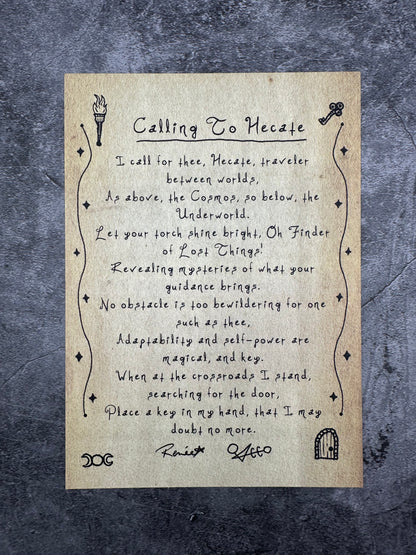 Calling To Hecate
I call for thee, Hecate, traveler
between worlds,
As above, the Cosmos, so below, the
Underworld.
Let your torch shine bright, Oh Finder
of Lost Things!
Revealing mysteries of what your
guidance brings.
No obstacle is too bewildering for one
such as thee,
Adaptability and self-power are
magical, and key.
When at the crossroads I stand,
searching for the door,
Place a key in my hand, that I may
doubt no more.